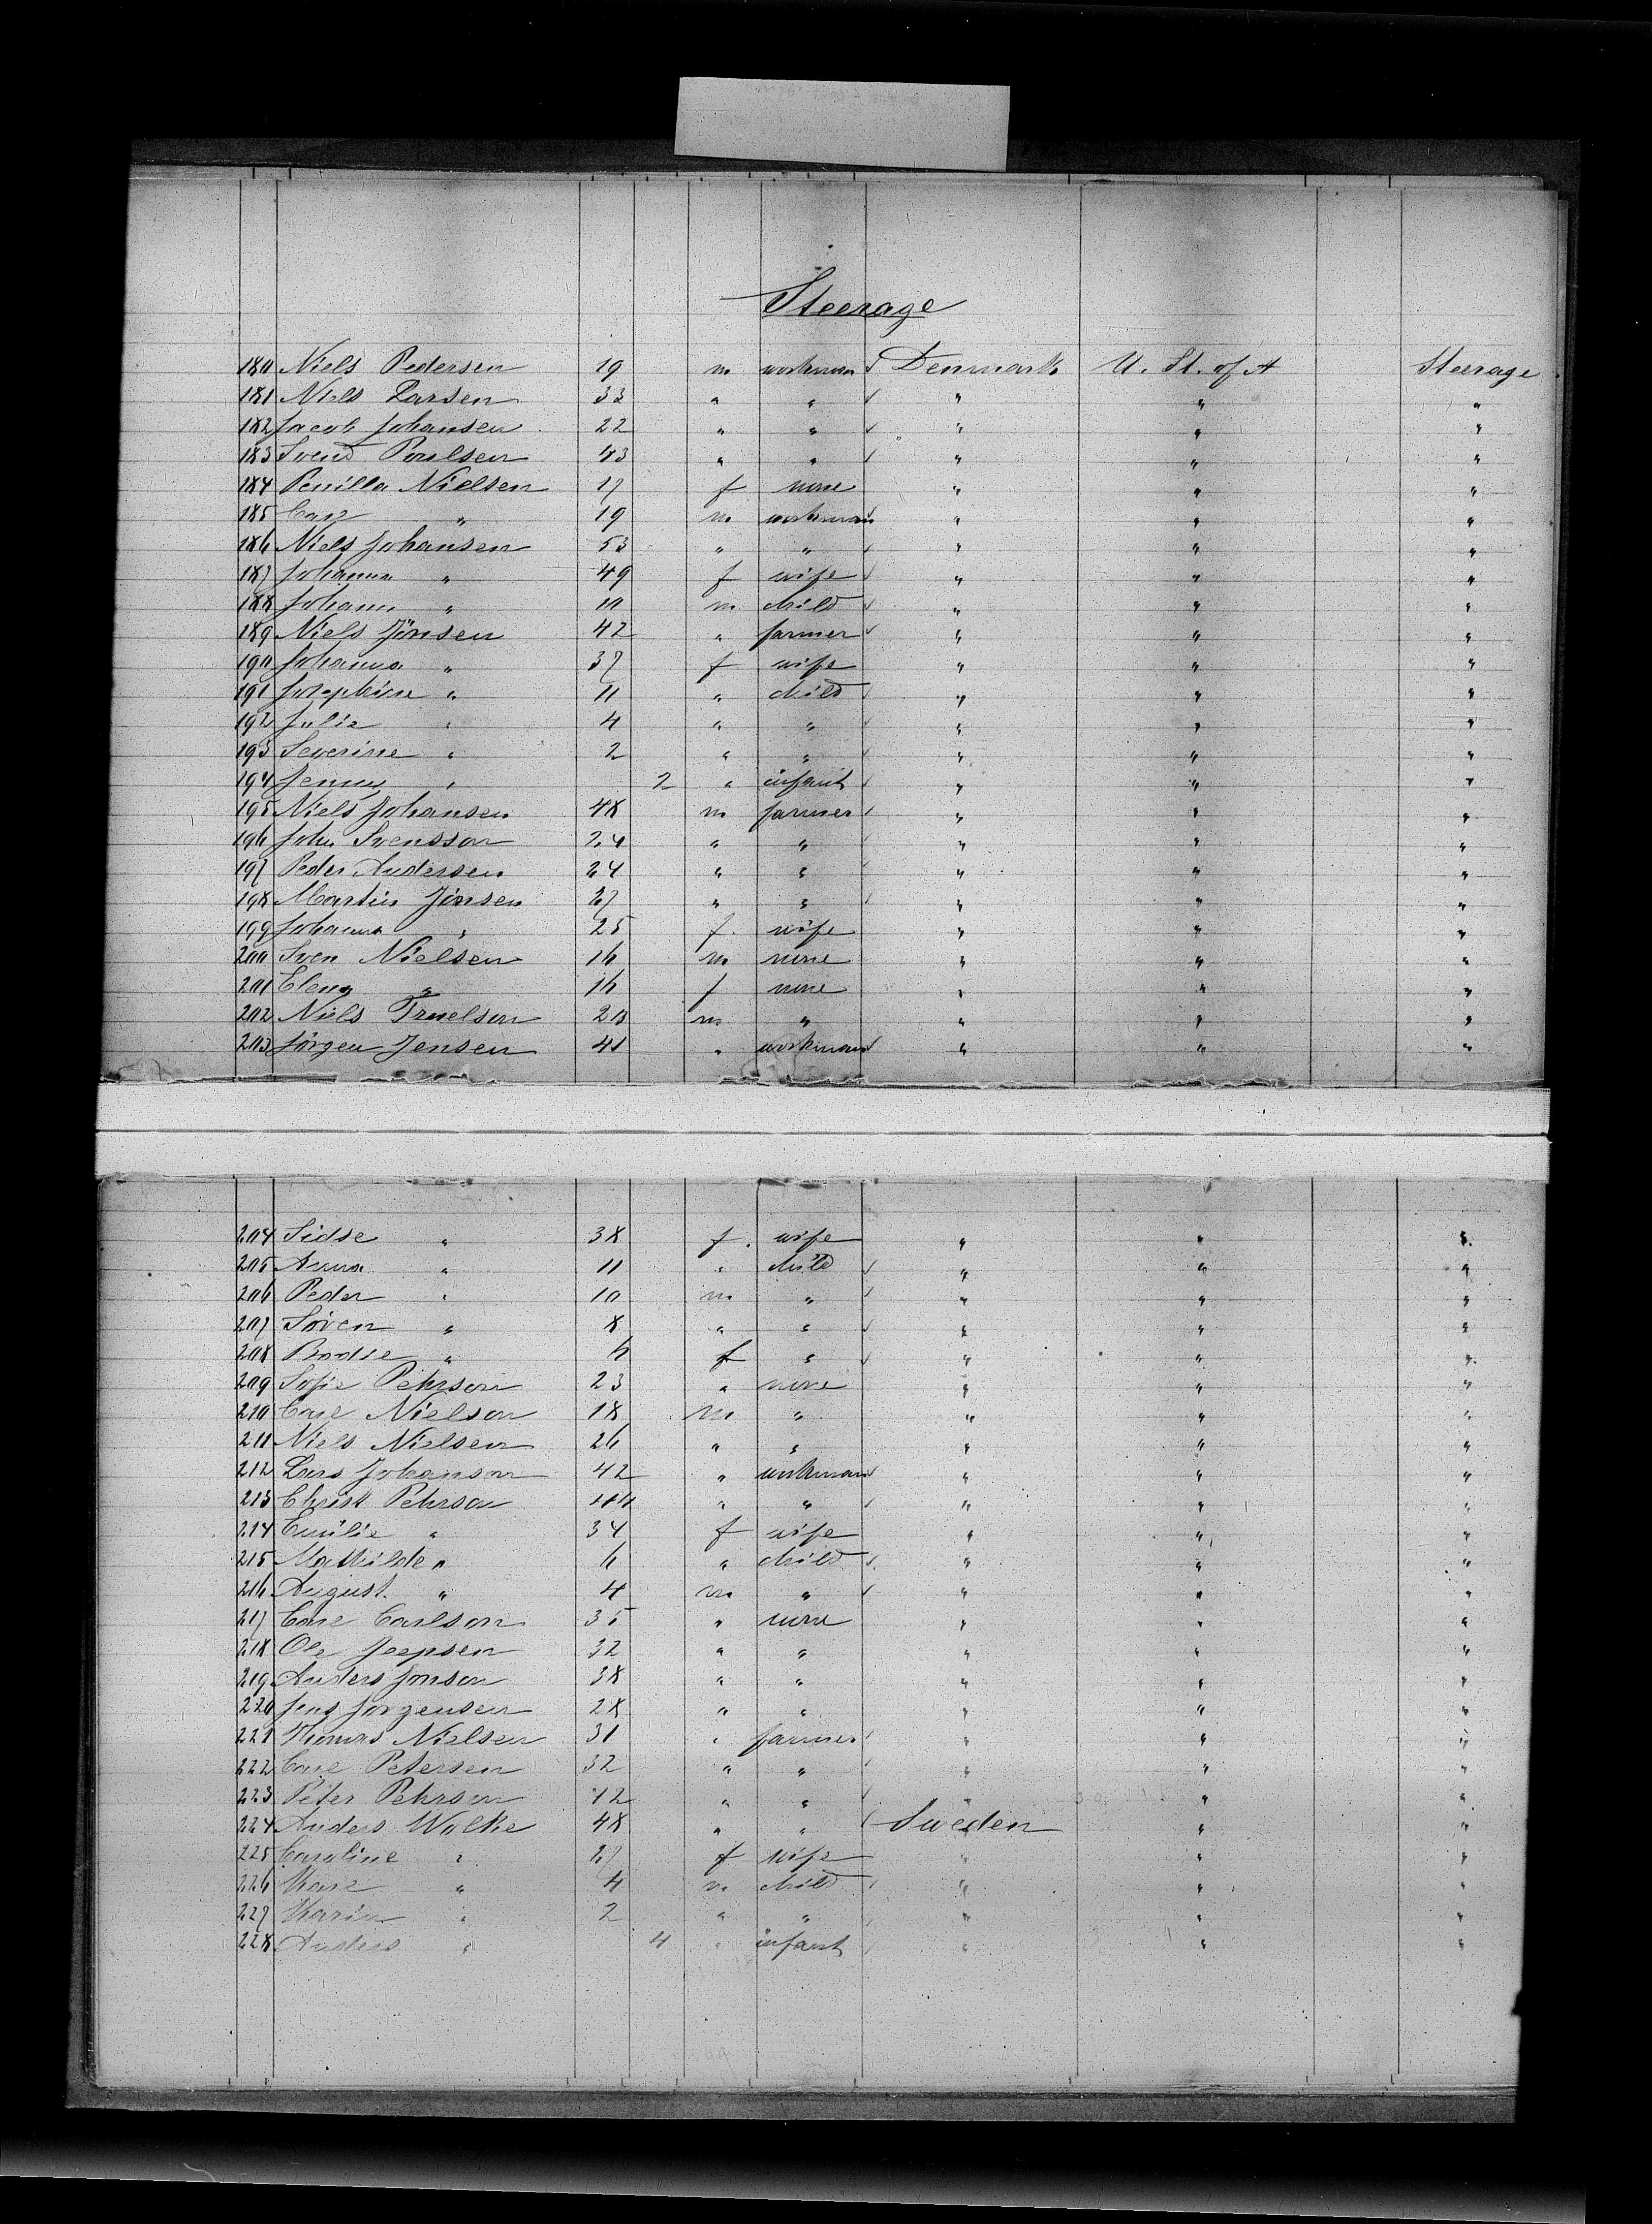 Steerage
180 Niels Pedersen 19 m workman √ Denmark U. St. of A Steerage
181 Niels Larsen 33 " " √ " " "
182 Jacob Johansen 22 " " √ " " "
183 Svend Poulsen 43 " " √ " " "
184 Penilla Nielsen 17 f none " " "
185 Carl " 19 m workman √ " " "
186 Niels Johansen 53 " " √ " " "
187 Johanna " 49 f wife √ " " "
188 Johann " 10 m child √ " " "
189 Niels Jönsen 42 " farmer √ " " "
190 Johanna " 37 f wife " " "
191 Josephine " 11 " child √ " " "
192 Julie " 4 " " √ " " "
193 Severine " 2 " " √ " " "
194 Jenny " 2 " infant √ " " "
195 Niels Johansen 48 m farmer √ " " "
196 John Svensson 24 " " √ " " "
197 Peder Andersen 24 " " √ " " "
198 Martin Jönsen 27 " " √ " " "
199 Johanna " 25 f. wife " " "
200 Sven Nielsen 16 m none " " "
201 Elena " 16 f none " " "
202 Niels Truelson 20 m " " " "
203 Jörgen Jensen 41 " workman √ " " "
204 Sidse " 38 f. wife " " "
205 Anna " 11 " child √ " " "
206 Peder " 10 m " √ " " "
207 Sören " 8 " " √ " " "
208 Bodse " 6 f " √ " " "
209 Sofie Pehrson 23 " none " " "
210 Carl Nielson 18 m " " " "
211 Niels Nielsen 26 " " " " "
212 Lars Johanson 42 " workman √ " " "
213 Christ Pehrson " " √ " " "
214 Emilie " 34 f wife " " "
215 Mathilde " 6 " child √ " " "
216 August. " 4 m " √ " " "
217 Carl Carlson 35 " none " " "
218 Ole Jeepsen 32 " " " " "
219 Anders Jonson 38 " " " " "
220 Jens Jorgensen 28 " " " " "
221 Thomas Nielsen 31 " farmer √ " " "
222 Carl Petersen 32 " " √ " " "
223 Peter Pehrson 42 " " √ " " "
224 Anders Wolke 48 " " √ Sweden " "
225 Caroline " 27 f wife " " "
226 Karl " 4 m child √ " " "
227 Karin " 2 " " √ " " "
228 Anders " 4 " infant √ " " "